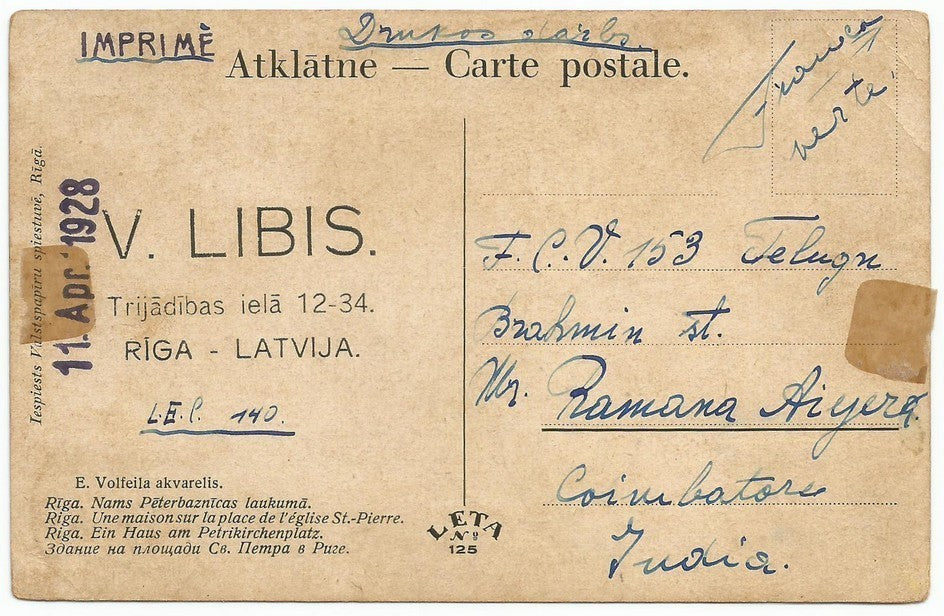 IMPRIMĒ
Drukos darbs.
Atklātne — Carte postale.
Franco
verte!
Iespiests Valstspapīru spiestuvē, Rīgā.
11. Apr. 1928
V. LIBIS.
Trijādības ielā 12-34.
RĪGA - LATVIJA.
L.E.C. 140.
F.C.V. 153 Telugu
Brahmin st.
Mr. Ramana Aiyer
Coimbatore
India.
E. Volfeila akvarelis.
Rīga. Nams Pēterbaznīcas laukumā.
Riga. Une maison sur la place de l'église St.-Pierre.
Riga. Ein Haus am Petrikirchenplatz.
Здание на площади Св. Петра в Риге.
LETA
Nº
125